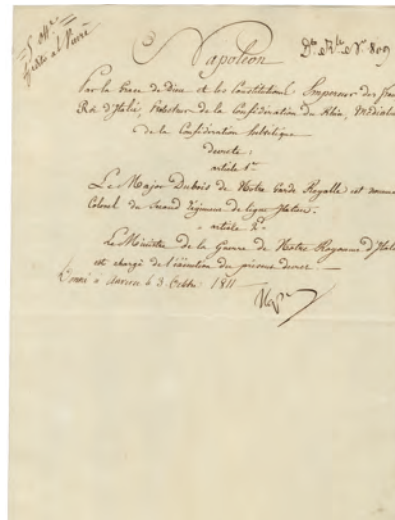 5 8bre
Napoleon
Par la Grace de Dieu et les Constitutions Empereur des Fran
Roi d'Italie, Protecteur de la Confédération du Rhin, Médiate
de la Confédération helvétique
decrete:
article 1er
Le Major Dubois de Notre Garde Royalle est nomm
Colonel du Second Régiment de ligne Italien.
article 2d
Le Ministre de la Guerre de Notre Royaume d'Ital
est chargé de l'éxécution du présent decret.
Donné à Anvers le 3. Octobre 1811
Np